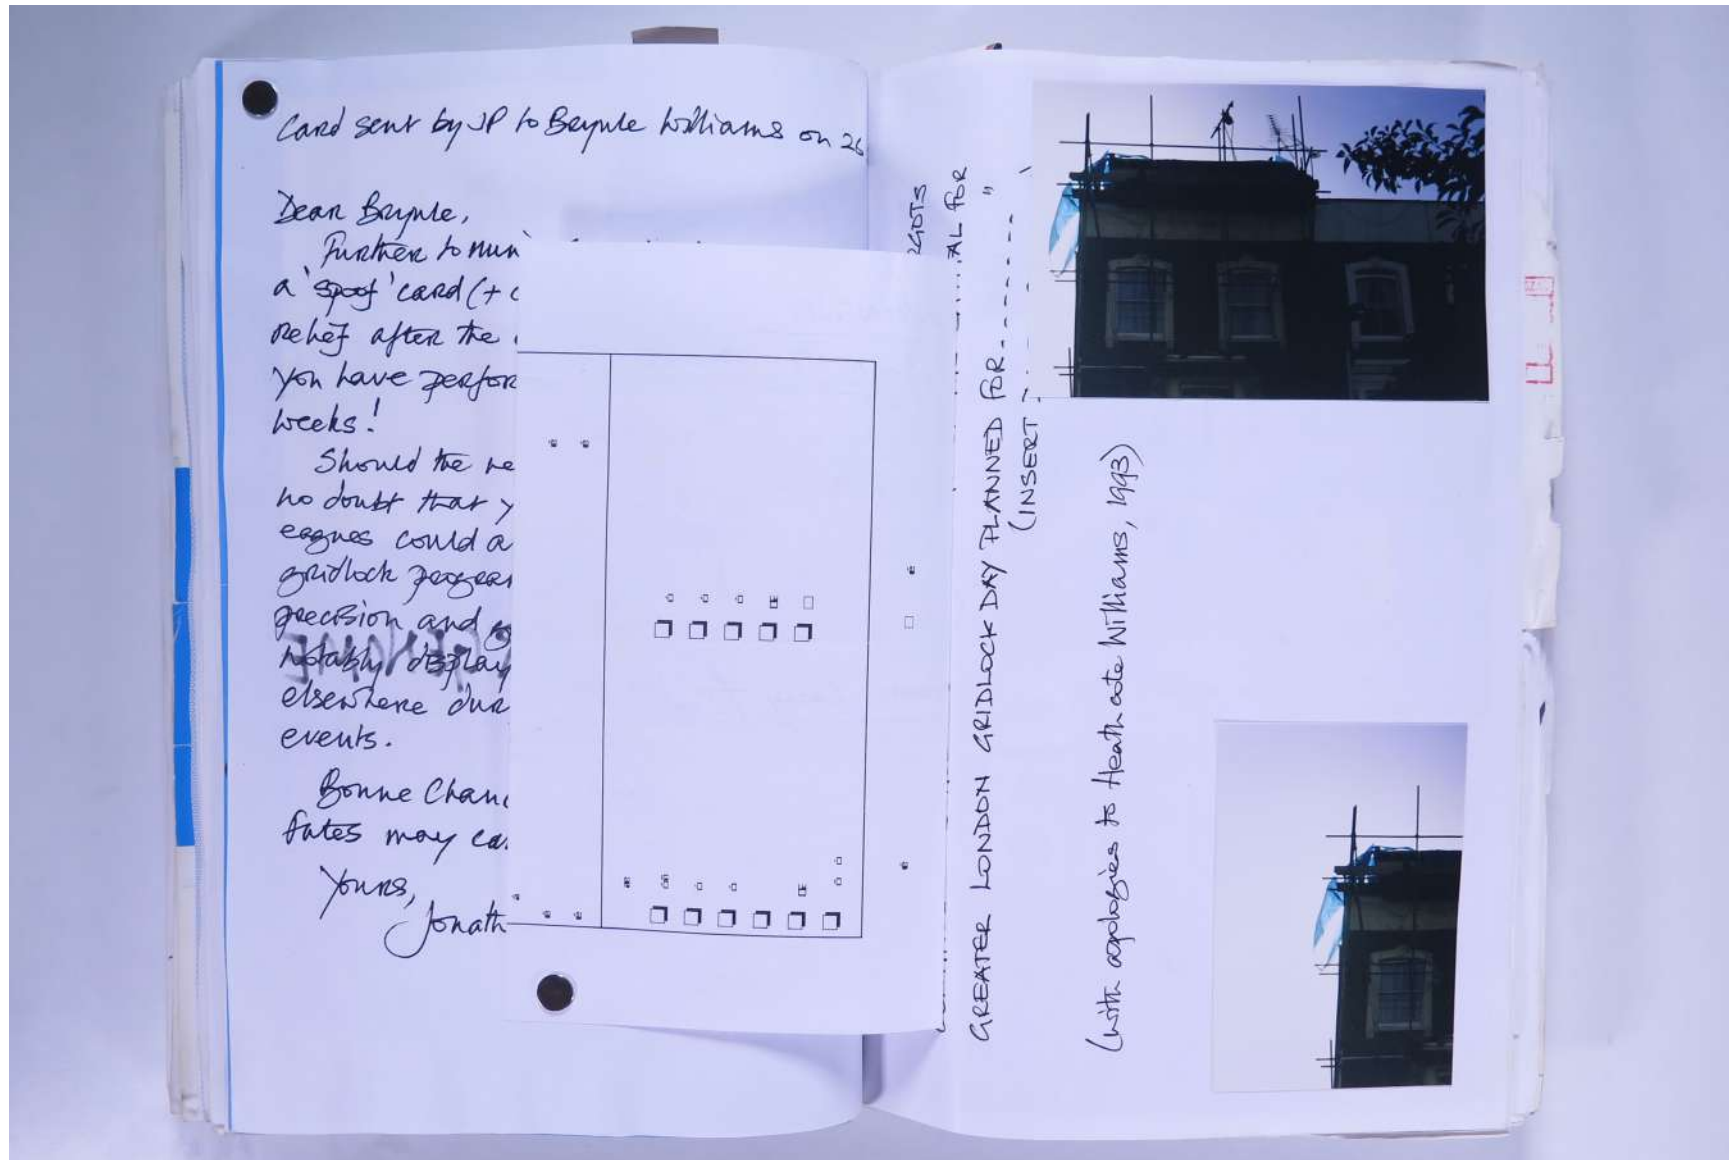 Card sent by JP to Brynle Williams on 26
Dear Brynle,
Further to
a 'spoof' card (+
relief after the
you have perfor
weeks!
Should the ne
no doubt that y
eagues could a
gridlock program
precision and
notably display
elsewhere dur
events.
Bonne Chanc
fates may ca
Yours,
Jonath
RGOTS
AL FOR
"
GREATER LONDON GRIDLOCK DAY PLANNED FOR--------
(INSERT
(with apologies to Heathcote Williams, 1993)